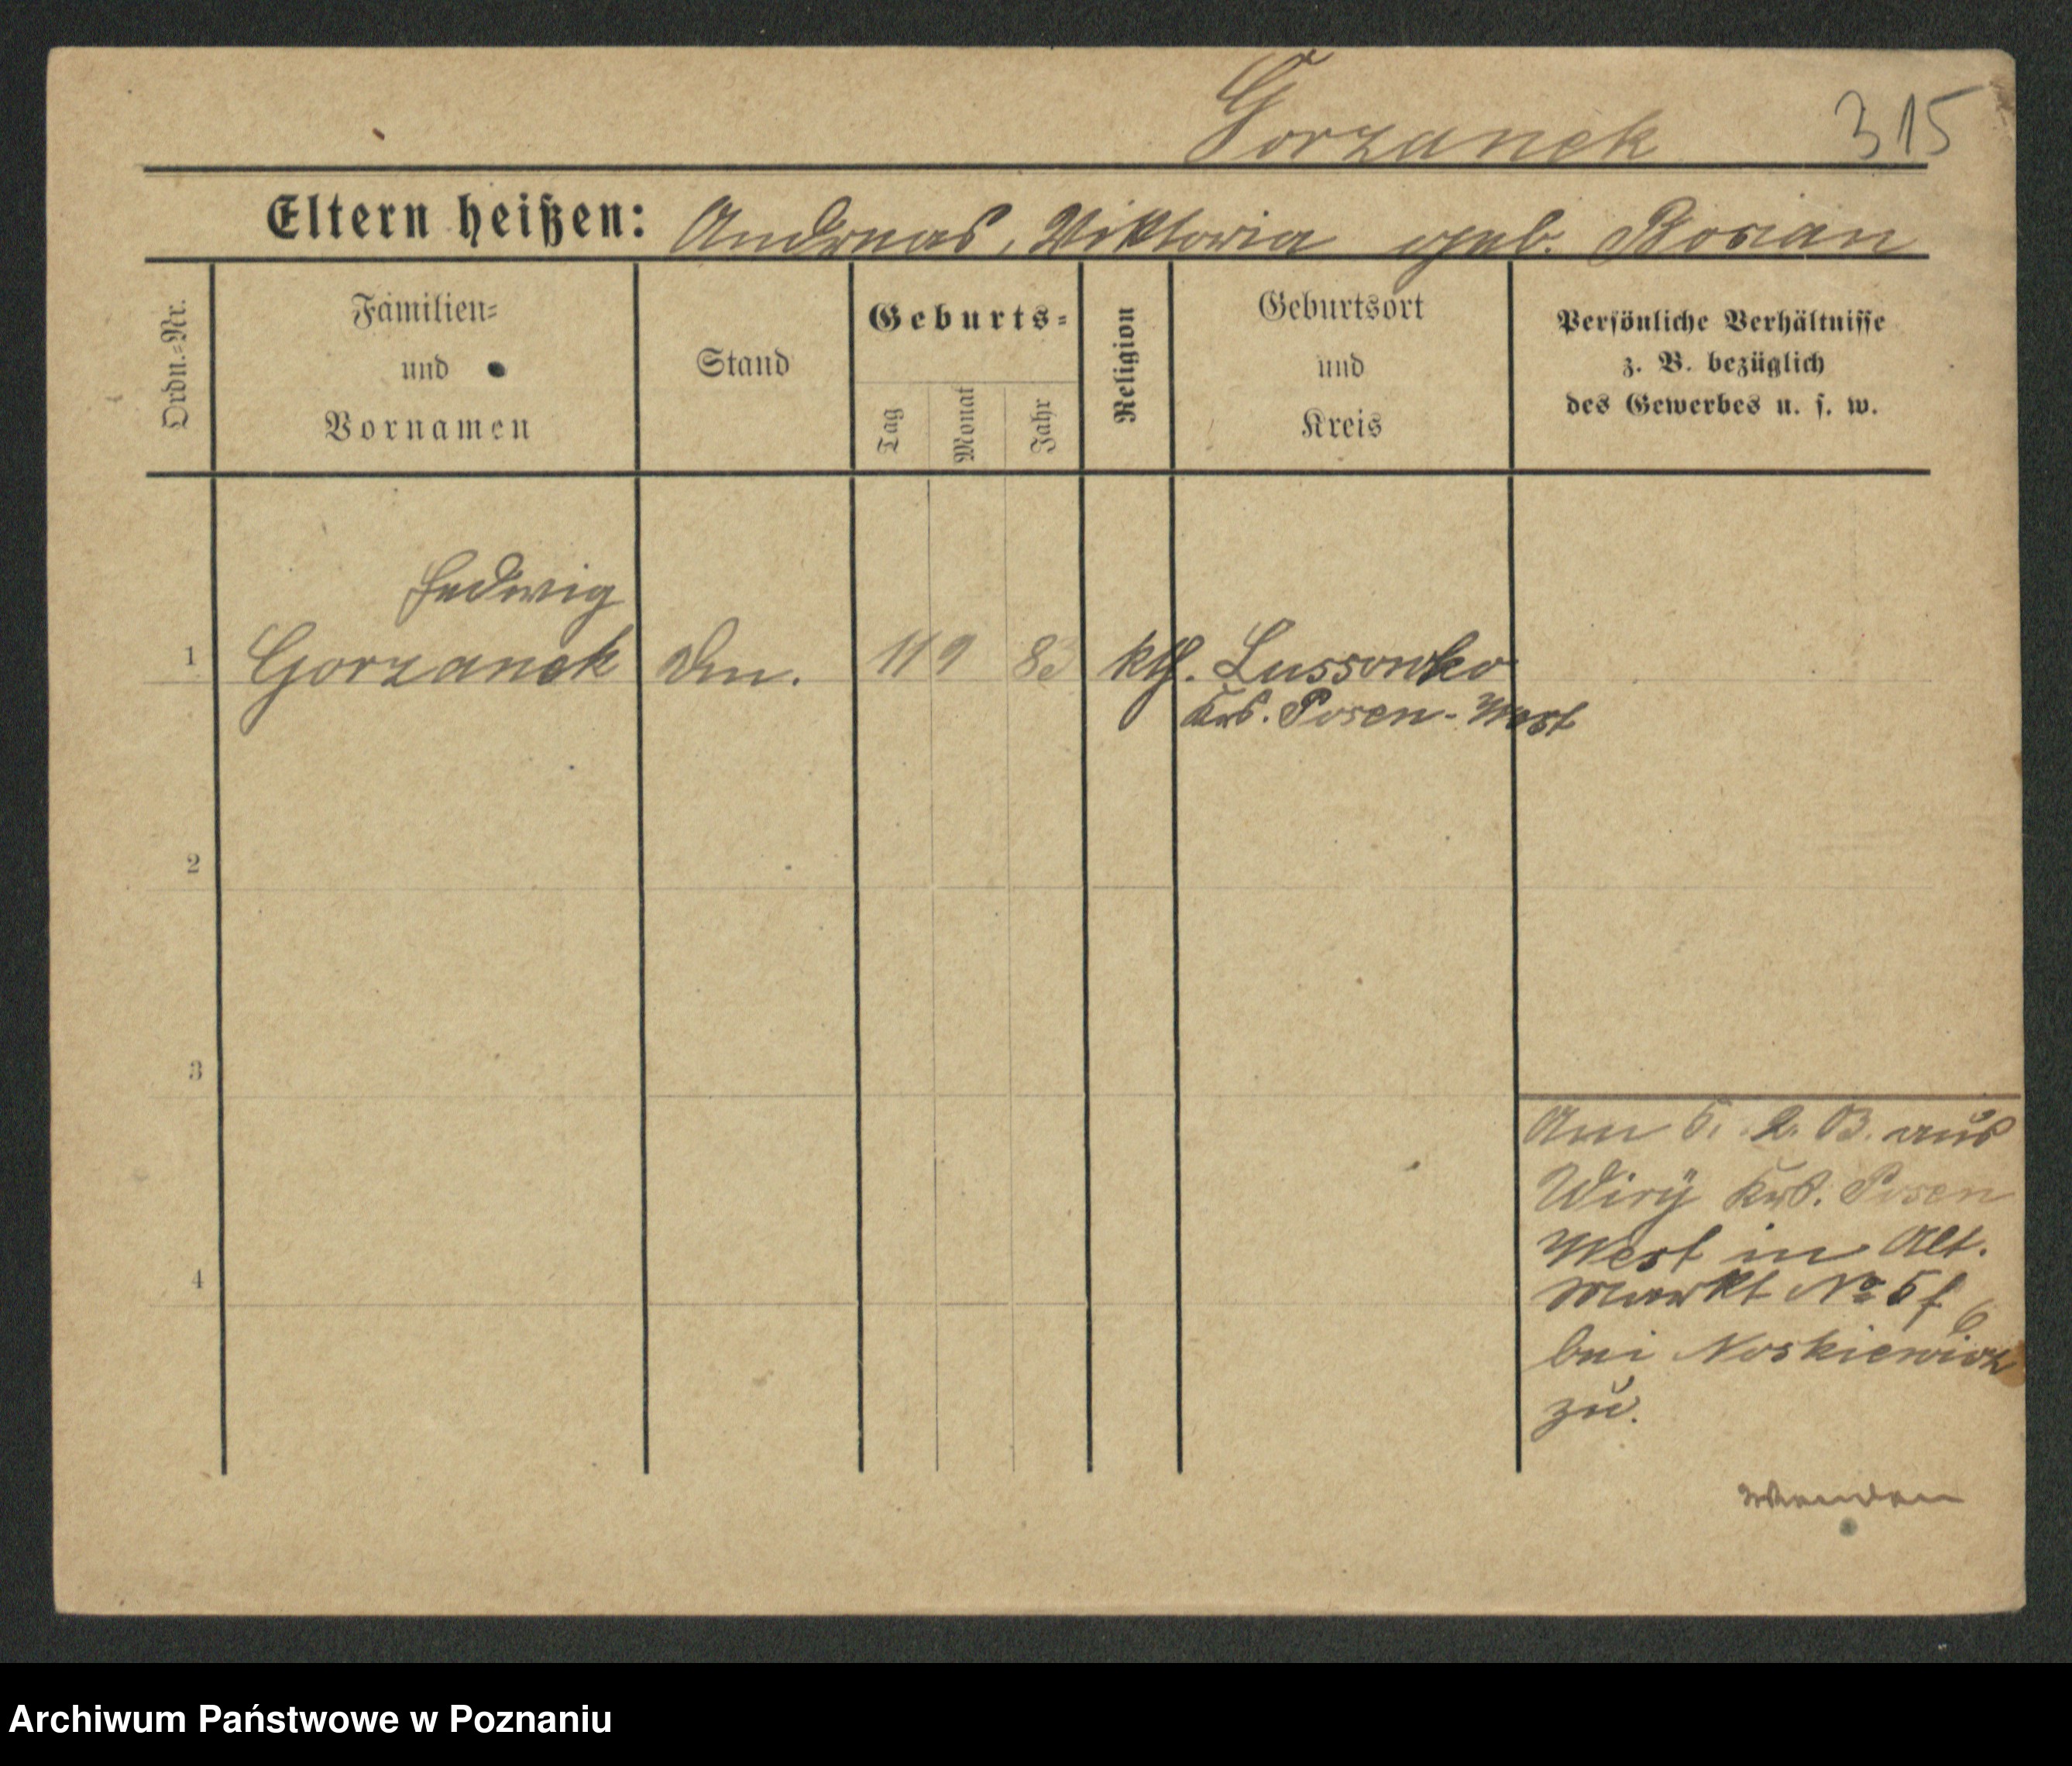 Gorzanek 315
Eltern heißen: Andreas, Viktoria geb. Bosian
Ordn.-Nr.
Familien-
und
Vornamen
Stand
Geburts-
Tag
Monat
Jahr
Religion
Geburtsort
und
Kreis
Persönliche Verhältnisse
z. B. bezüglich
des Gewerbes u. s. w.
Hedwig
1 Gorzanek Dm. 11 9 83 kth. Lussowko
Krs. Posen-West
2
3
4
Am 5. 2. 03. aus
Wiry Krs. Posen
West in Alt.
Markt No 51
bei Noskiewicz
zu.
Wenden
Archiwum Państwowe w Poznaniu